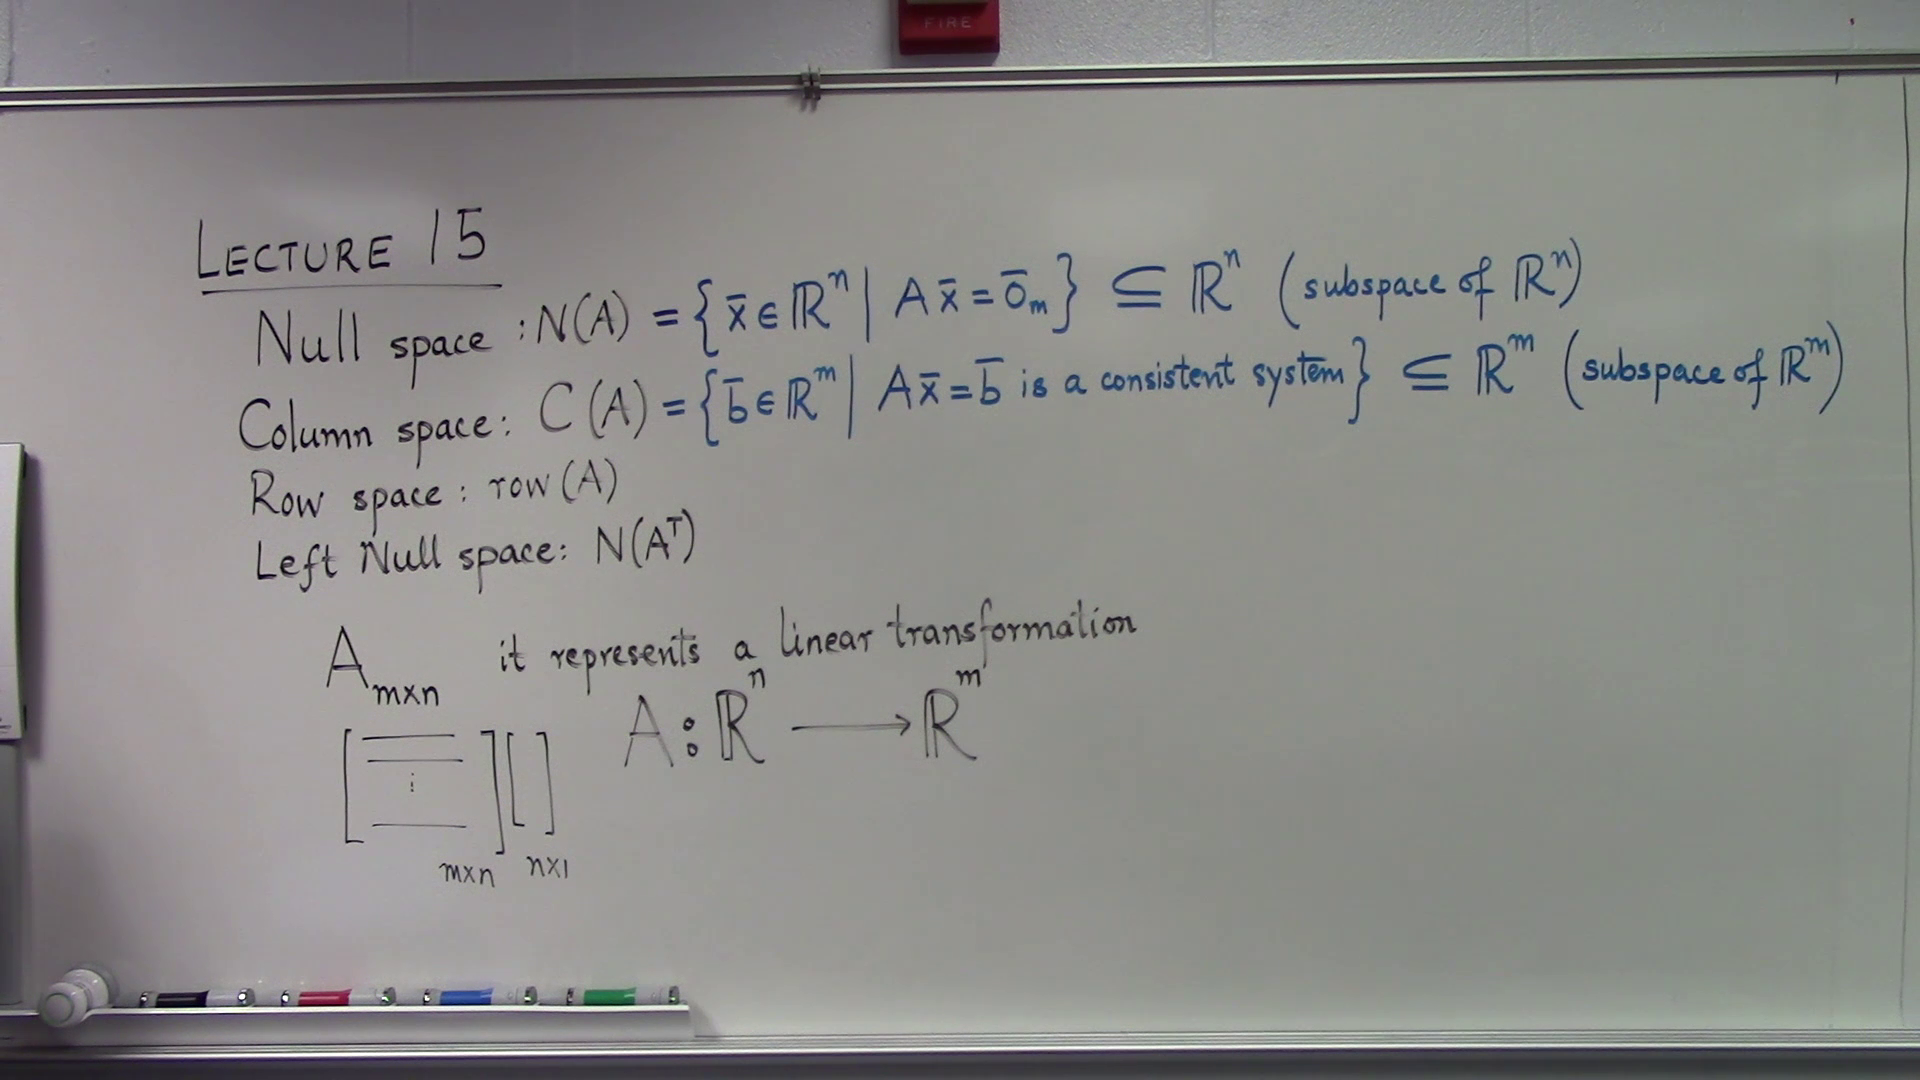 FIRE
LECTURE 15
Null space : N(A) = { x̄ ∈ ℝⁿ | A x̄ = 0̄ₘ } ⊆ ℝⁿ (subspace of ℝⁿ)
Column space: C(A) = { b̄ ∈ ℝᵐ | A x̄ = b̄ is a consistent system } ⊆ ℝᵐ (subspace of ℝᵐ)
Row space : row(A)
Left Null space: N(Aᵀ)
A m×n it represents a linear transformation
A : ℝⁿ ⟶ ℝᵐ
[ ⋮ ] [ ]
m×n n×1